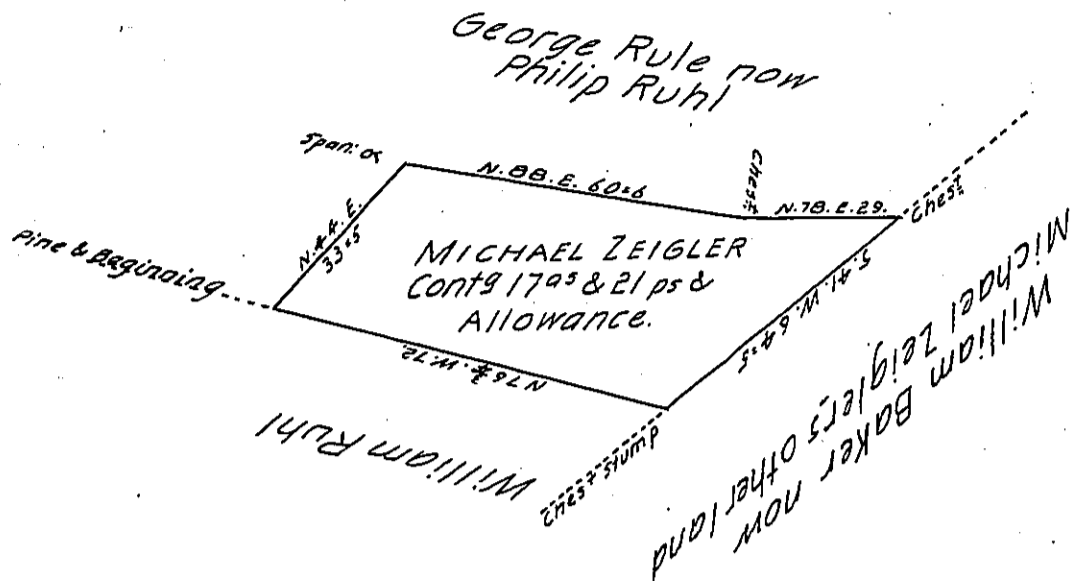 George Rule now
Philip Ruhl
Span: oK
N.88.E. 60=6
Chest:
N.78.E.29.
Chest:
N.44.E.
33=5
Pine & Baginning
MICHAEL ZEIGLER
Contg 17as & 21 ps &
Allowance.
S.41.W.64=5
N76¾.W.72.
William Ruhl
Chest Stump
William Baker now
Michael Zeiglers other land